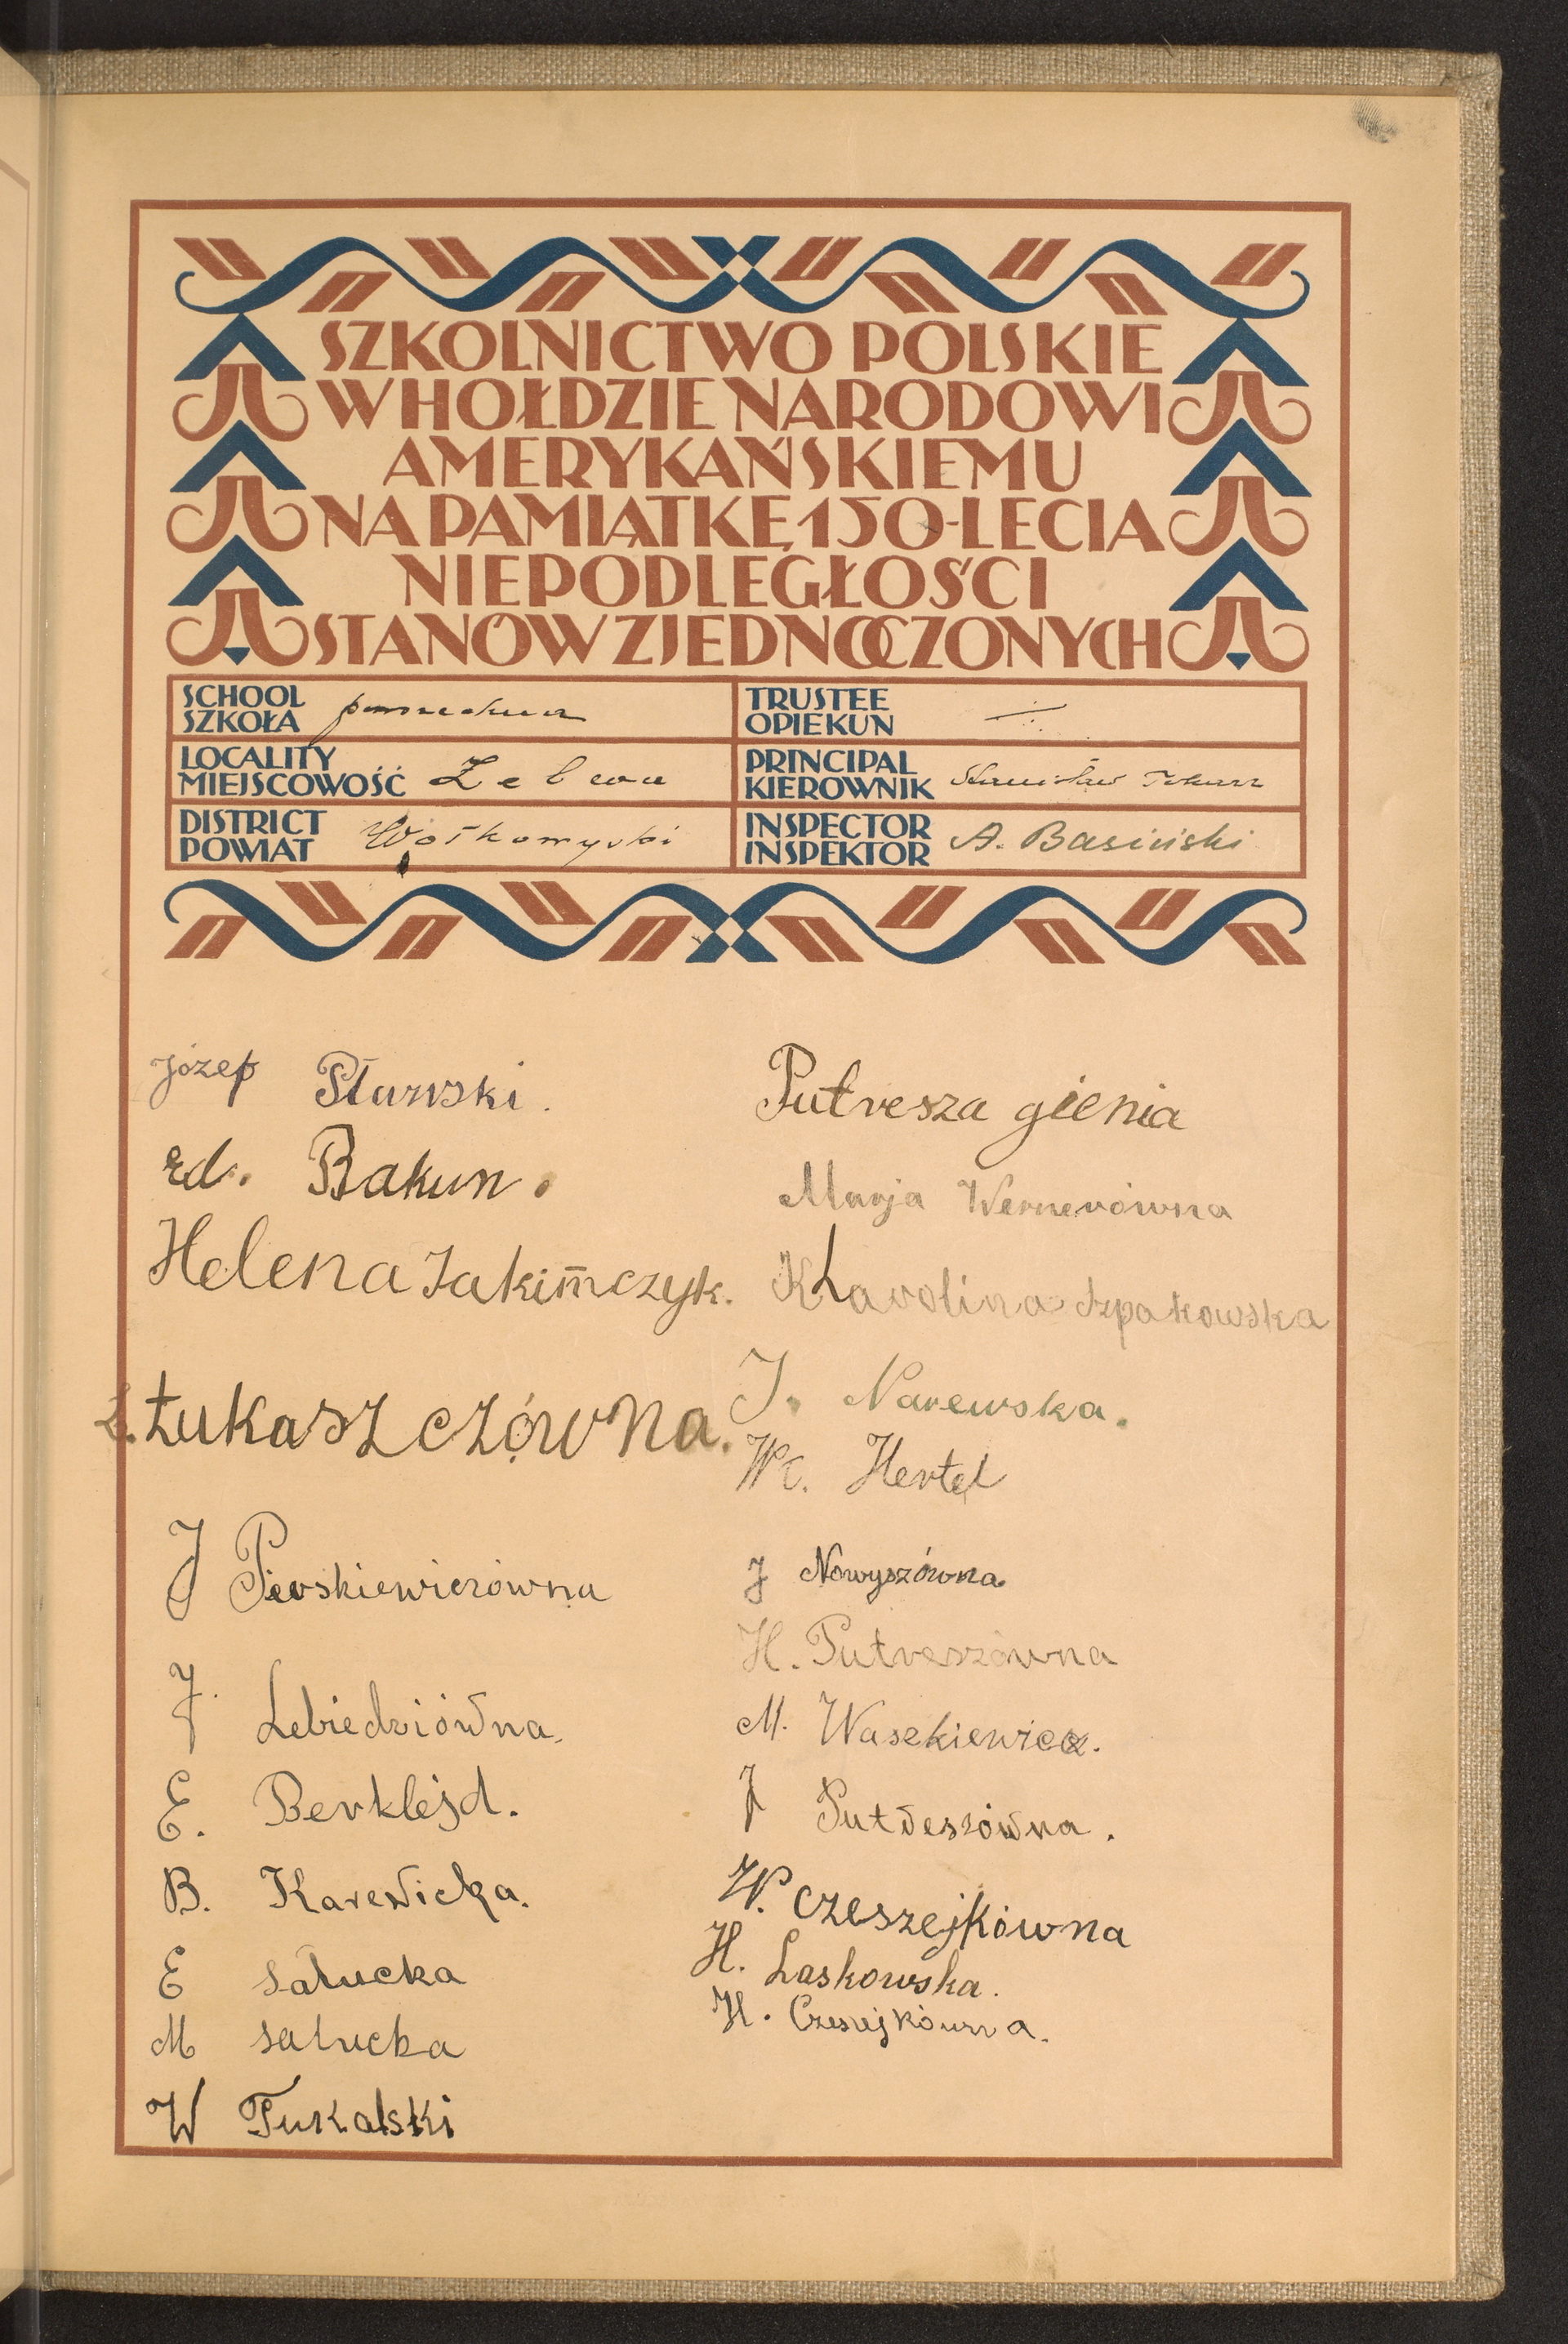 SZKOLNICTWO POLSKIE
W HOŁDZIE NARODOWI
AMERYKAŃSKIEMU
NA PAMIĄTKĘ 150-LECIA
NIEPODLEGŁOŚCI
STANÓW ZJEDNOCZONYCH
SCHOOL
SZKOŁA powszechna
TRUSTEE
OPIEKUN
LOCALITY
MIEJSCOWOŚĆ Zelwa
PRINCIPAL
KIEROWNIK Stanisław
DISTRICT
POWIAT Wołkowyski
INSPECTOR
INSPEKTOR A. Basiński
Józef Pławski.
Ed. Bakun.
Helena Jakimczyk.
Ł. Łukaszczówna.
J Pierskiewiczówna
J. Lebiedziówna.
E. Berklejd.
B. Karewicka.
E Sałucka
M Sałucka
W Tukalski
Putresza gienia
Marja Wernerówna
Karolina Szpakowska
J. Narewska.
Wł. Hertel
J Nowyszówna
H. Putreszówna
M. Waszkiewicz.
J Putreszówna.
W. Czeszejkówna
H. Laskowska.
H. Czeszejkówna.